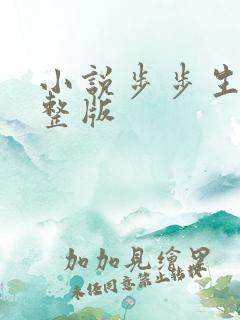 小说步步生
整版
加加見繪畀
未経同意禁止轉採